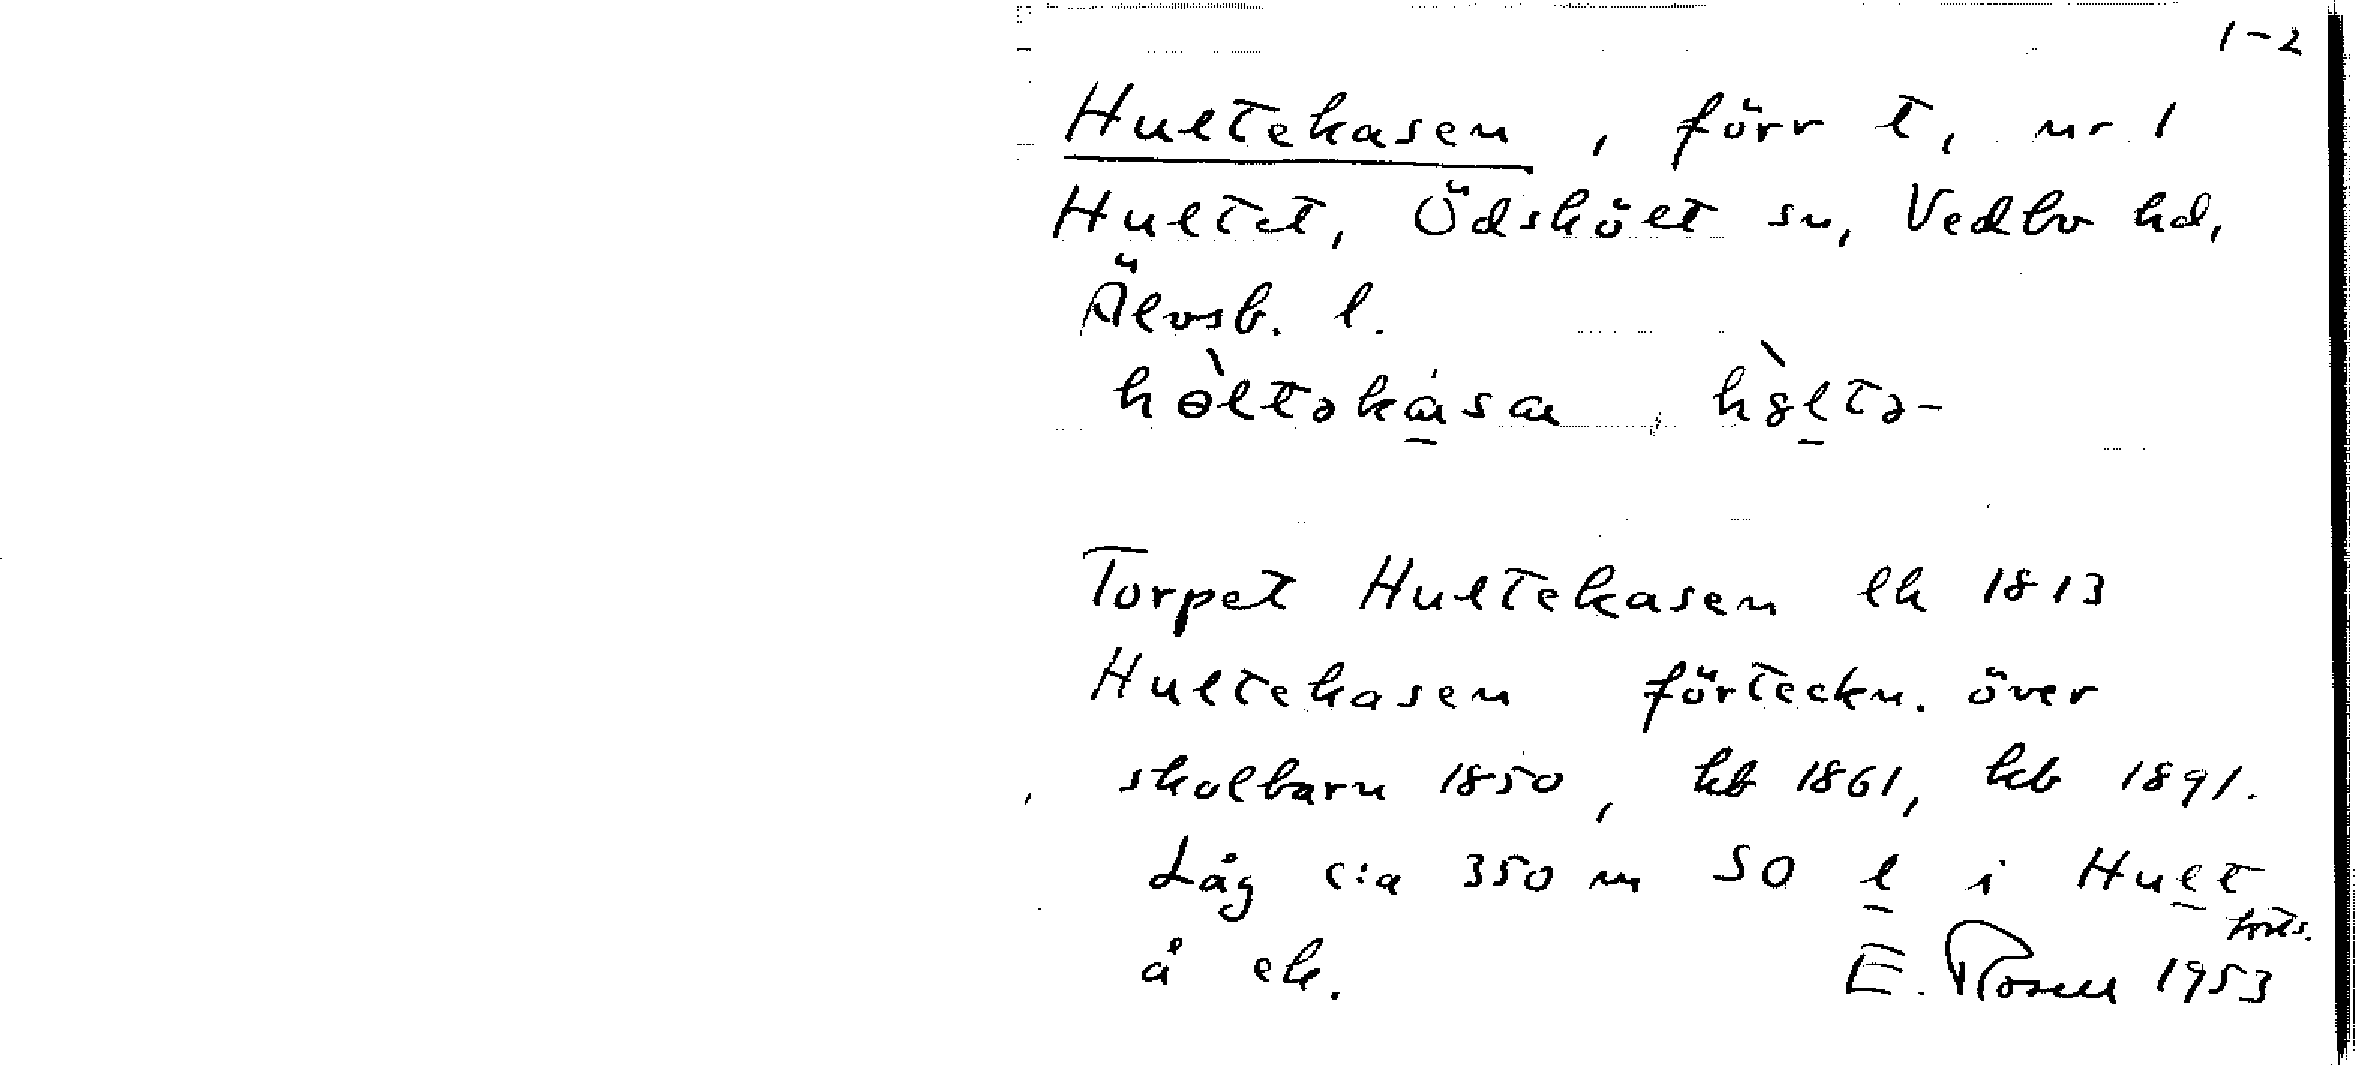 1-2
Hultekasen, förr t, nr 1
Hultet, Ödskölt sn, Vedbo hd,
Älvsb. l.
hɵ̀ltəkása, hȣ̀ltə-
Torpet Hultekasen lh 1813
Hultekasen förteckn. över
skolbarn 1850, hb 1861, hb 1891.
Låg c:a 350 m SO l i Hult
forts.
å ek. E. Rosell 1953